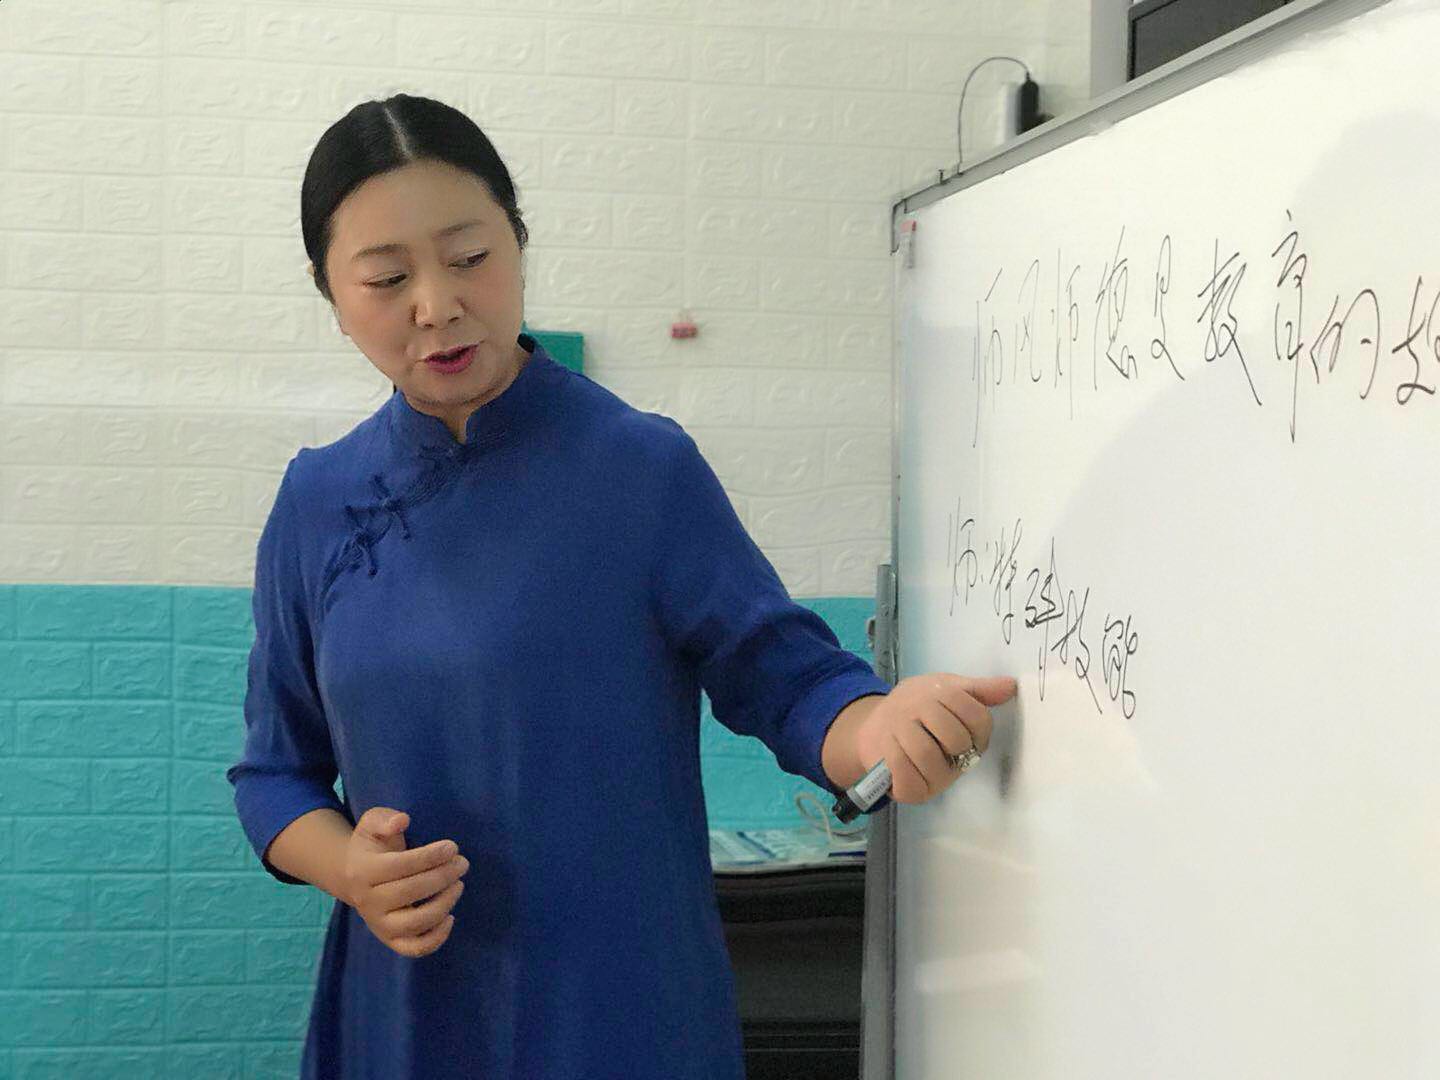 师风师德是教育的
师: 技能